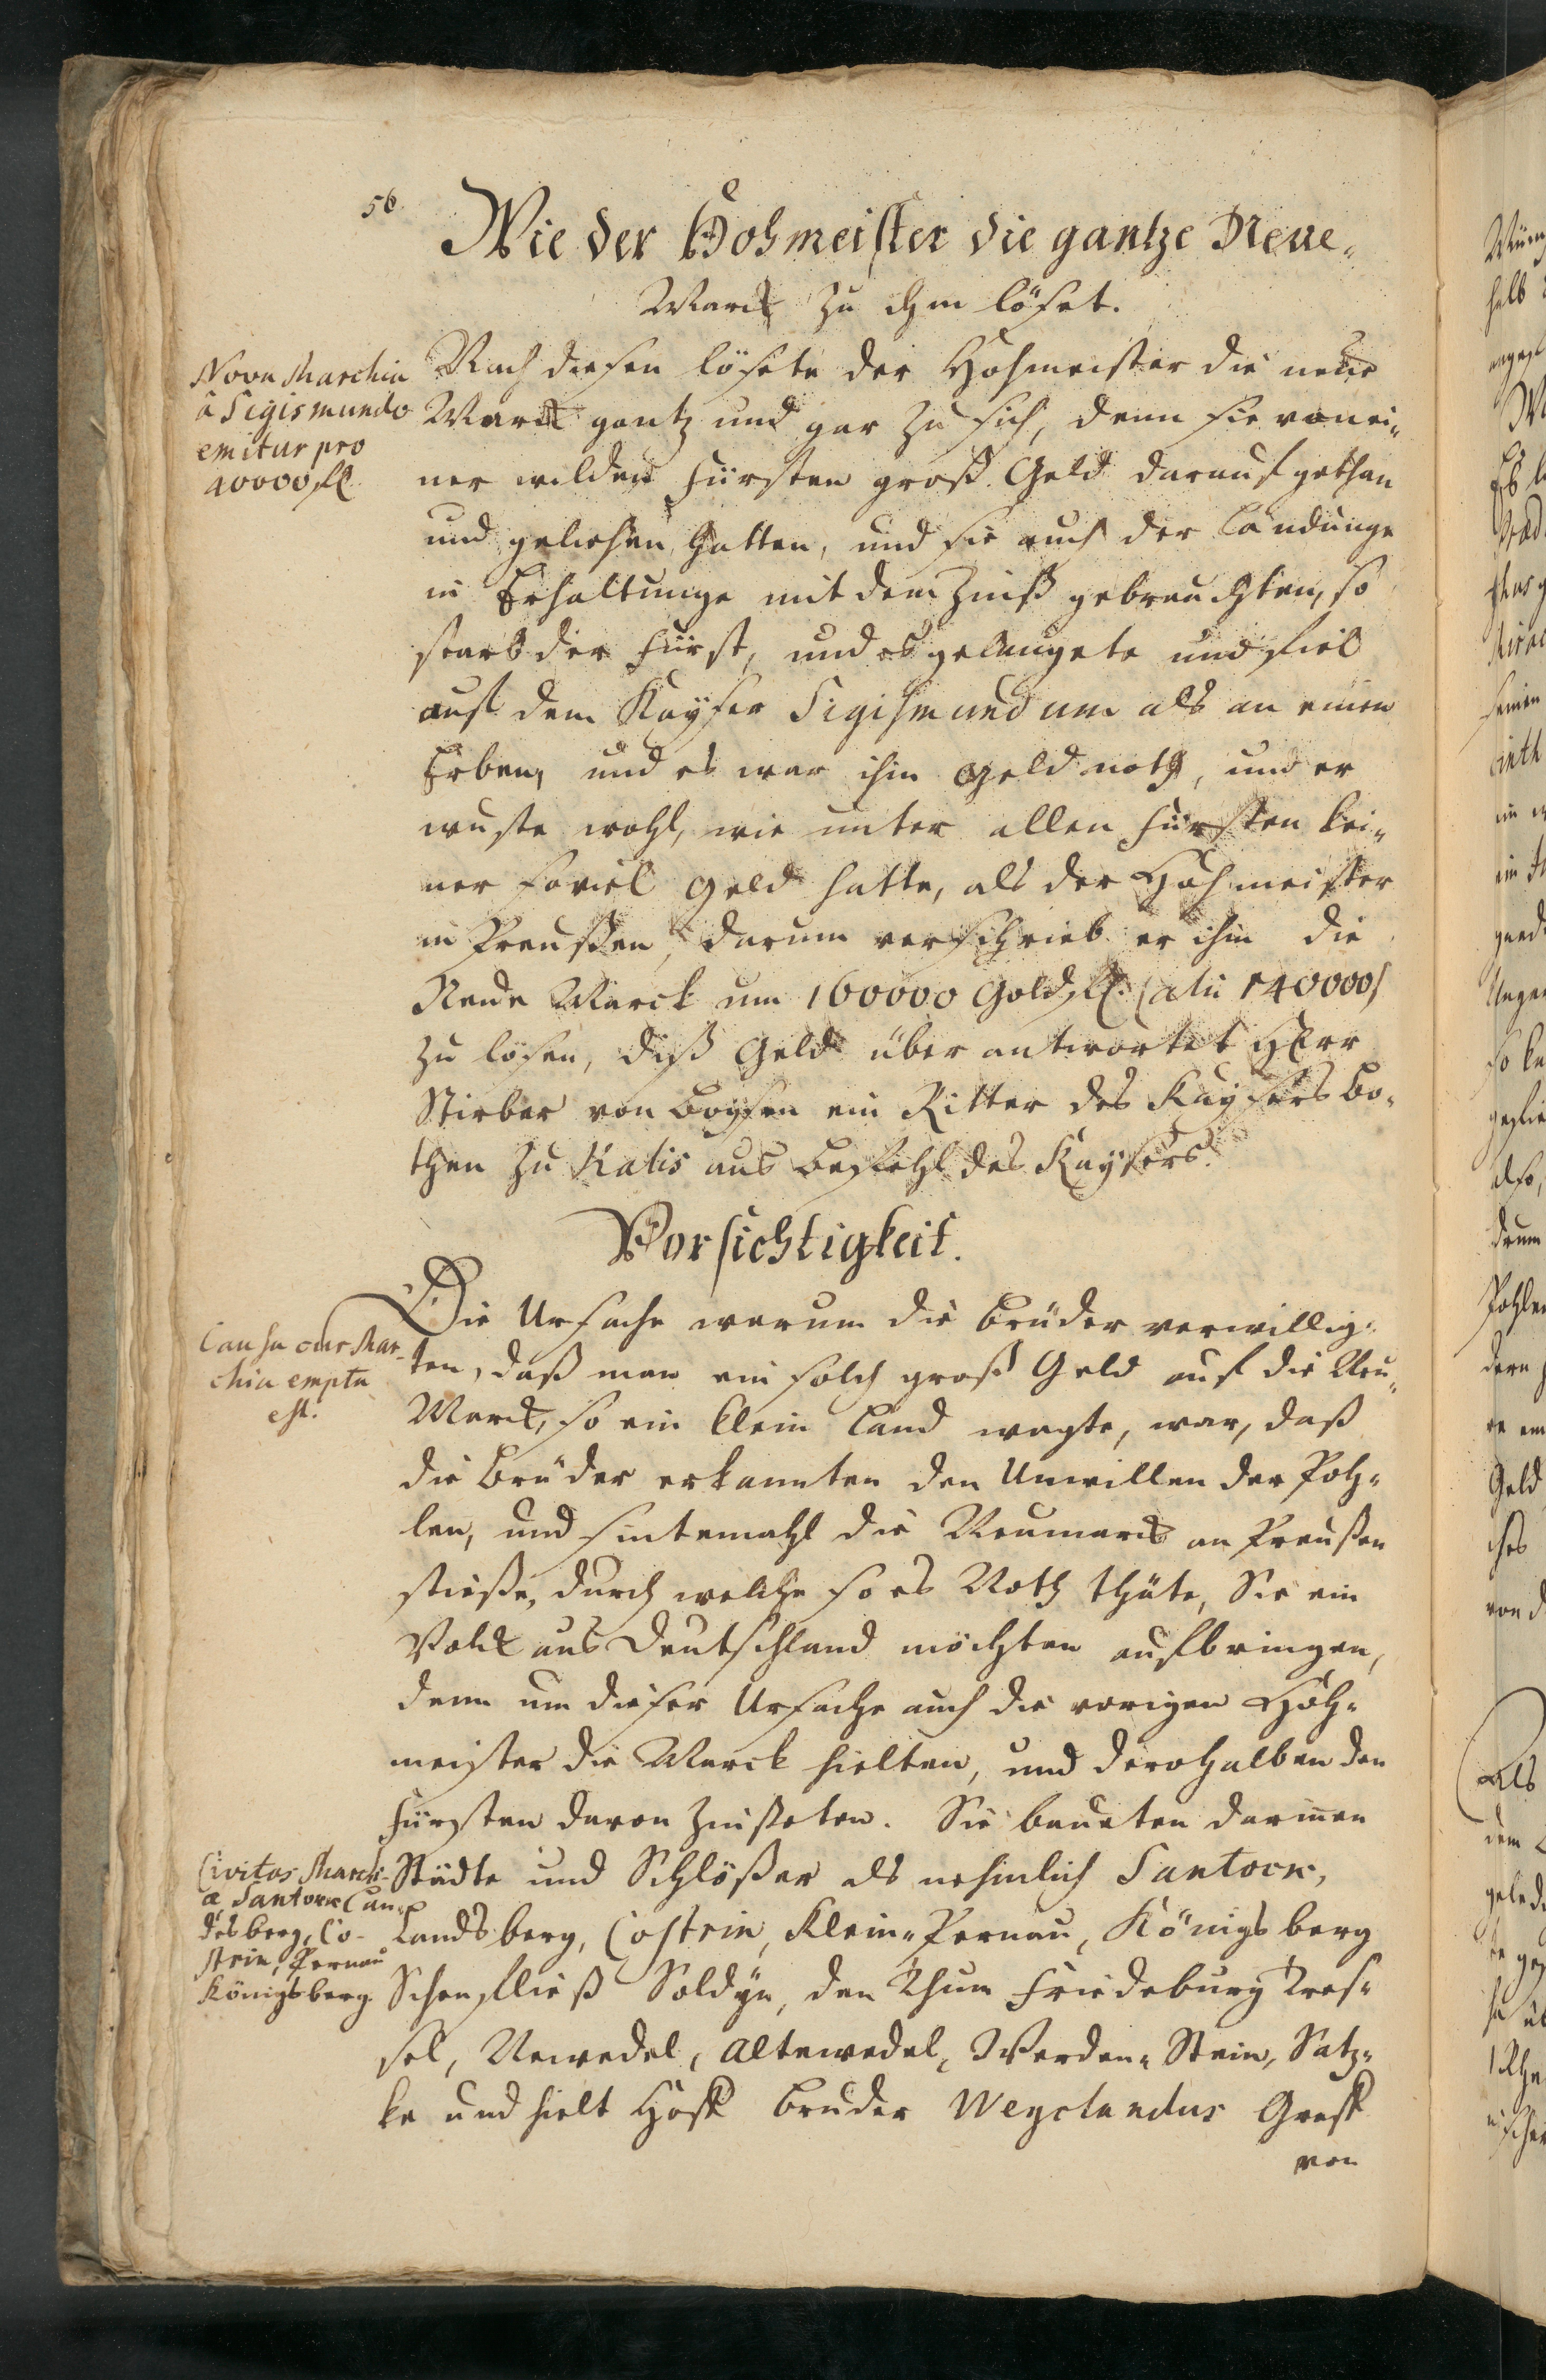 56
Wie der Hohmeister die gantze Neue-
Marck zu ihm löset.
Nova Marchia
â Sigismundo
emitur pro
40000 fl
Nach diesen lösete der Hohmeister die neue
Marck gantz und gar zu sich, denn sie von ei-
ner wilden Fürsten groß Geld darauf gethan
und geliehen hatten, und sie auch der Landunge
in Erhaltunge mit dem Zinß gebrauchten, so
starb der Fürst, und es gelangete und fiel
auf dem Kayser Sigismundum als an einen
Erben, und es war ihm Geld noth, und er
wuste wohl, wie unter allen Fürsten kei-
ner soviel Geld hatte, als der Hohmeister
in Preussen, darum verschrieb er ihm die
Neue Marck um 160000 Gold fl. (alii 140000)
zu lösen, diß Geld über antwortet Herr
Stirber von Boysen ein Ritter des Kaysers Bo-
then zu Kalis aus Befehl des Kaysers.
Vorsichtigkeit.
Causa cur Mar-
chia empta
est.
Die Ursache warum die Brüder verwillig-
ten, daß man ein solch groß Geld auf die Neu-
Marck, so ein klein Land wagte, war, daß
die Brüder erkannten den Unwillen der Poh-
len, und sintemahl die Neumarck an Preußen
stieße, durch welche so es Noth thäte, Sie ein
Volck aus Deutschland möchten aufbringen,
denn um dieser Ursache auch die vorigen Hoh-
meister die Marck hielten, und derohalben den
Fürsten davon zinßeten. Sie baueten darinnen
Civitas March-
a, Santock Lan-
desberg, Co-
strin, Pernau
Königsberg
Städte und Schlößer als nehmlich Santock,
Landsberg, Costrin, Klein-Pernau, Königsberg
Schonfließ Soldyn, den Thum Friedeburg Dres-
sel, Newedel, Altewedel, Werden-Stein, Satz-
ke und hielt Hoff Bruder Weyclandus Graff
von